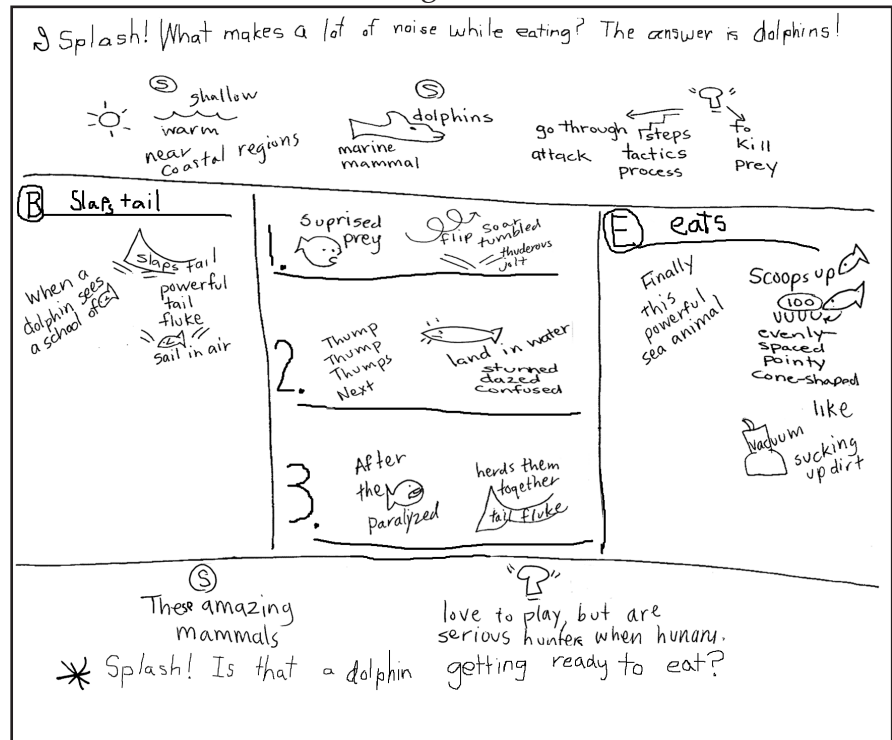 Splash! What makes a lot of noise while eating? The answer is dolphins!
S
shallow
warm
near
coastal regions
S
dolphins
marine
mammal
go through steps to
attack tactics kill
process prey
B Slaps tail
when a
dolphin sees
a school of
slaps tail
powerful
tail
fluke
sail in air
1.
Suprised
prey
flip soar
tumbled
thuderous
jolt
2.
Thump
Thump
Thumps
Next
land in water
stunned
dazed
confused
3.
After
the
paralyzed
herds them
together
tail fluke
E eats
Finally
this
powerful
sea animal
Scoops up
100
evenly
spaced
pointy
cone-shaped
like
vacuum
sucking
up dirt
S
These amazing
mammals
love to play, but are
serious hunters when hungry.
Splash! Is that a dolphin getting ready to eat?